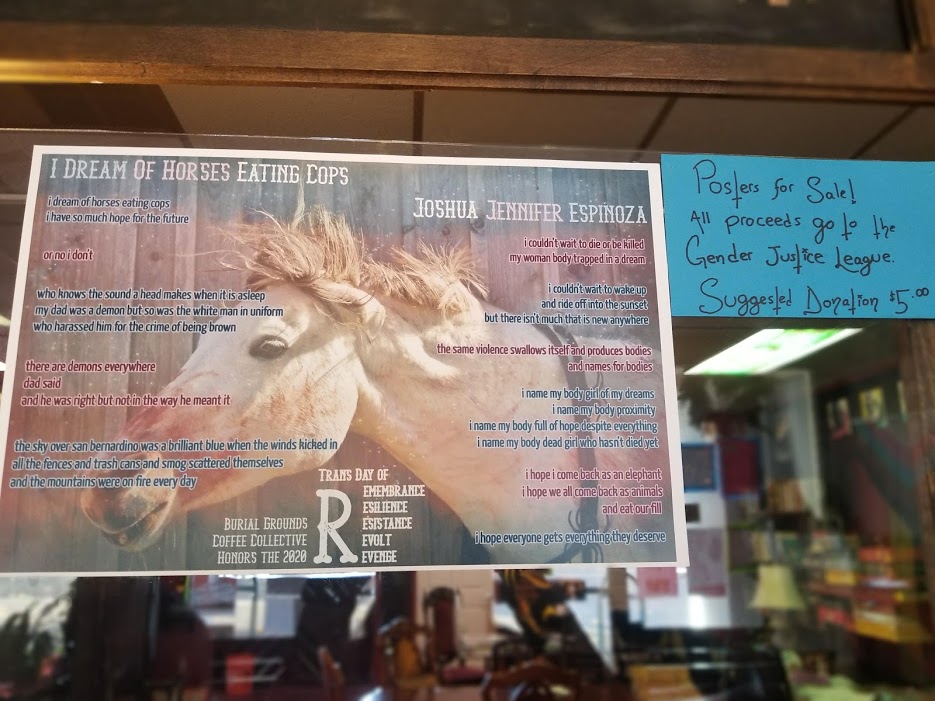 I Dream Of Horses Eating Cops
Joshua Jennifer Espinoza
i dream of horses eating cops
i have so much hope for the future
or no i don't
who knows the sound a head makes when it is asleep
my dad was a demon but so was the white man in uniform
who harassed him for the crime of being brown
there are demons everywhere
dad said
and he was right but not in the way he meant it
the sky over san bernardino was a brilliant blue when the winds kicked in
all the fences and trash cans and smog scattered themselves
and the mountains were on fire every day
i couldn't wait to die or be killed
my woman body trapped in a dream
i couldn't wait to wake up
and ride off into the sunset
but there isn't much that is new anywhere
the same violence swallows itself and produces bodies
and names for bodies
i name my body girl of my dreams
i name my body proximity
i name my body full of hope despite everything
i name my body dead girl who hasn't died yet
i hope i come back as an elephant
i hope we all come back as animals
and eat our fill
i hope everyone gets everything they deserve
Burial Grounds
Coffee Collective
Honors the 2020
Trans Day of
Remembrance
Resilience
Resistance
Revolt
Revenge
Posters for Sale!
All proceeds go to the
Gender Justice League.
Suggested Donation $5.00